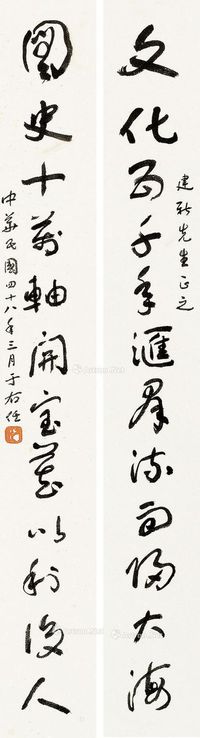 文化五千年匯群流而歸大海
建新先生正之
圖史十萬軸開寶藏以利後人
中華民國四十八年三月于右任